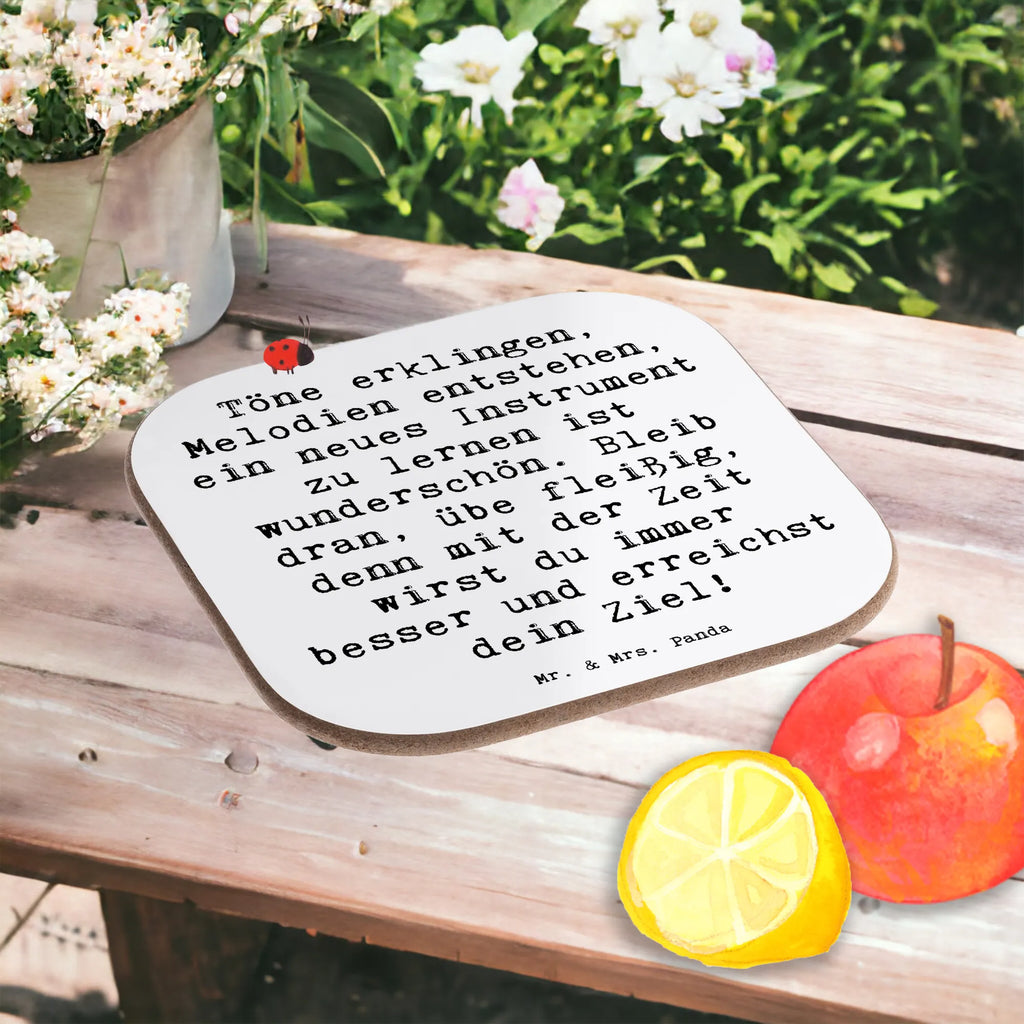 Töne erklingen,
Melodien entstehen,
ein neues Instrument
zu lernen ist
wunderschön. Bleib
dran, übe fleißig,
denn mit der Zeit
wirst du immer
besser und erreichst
dein Ziel!
Mr. & Mrs. Panda